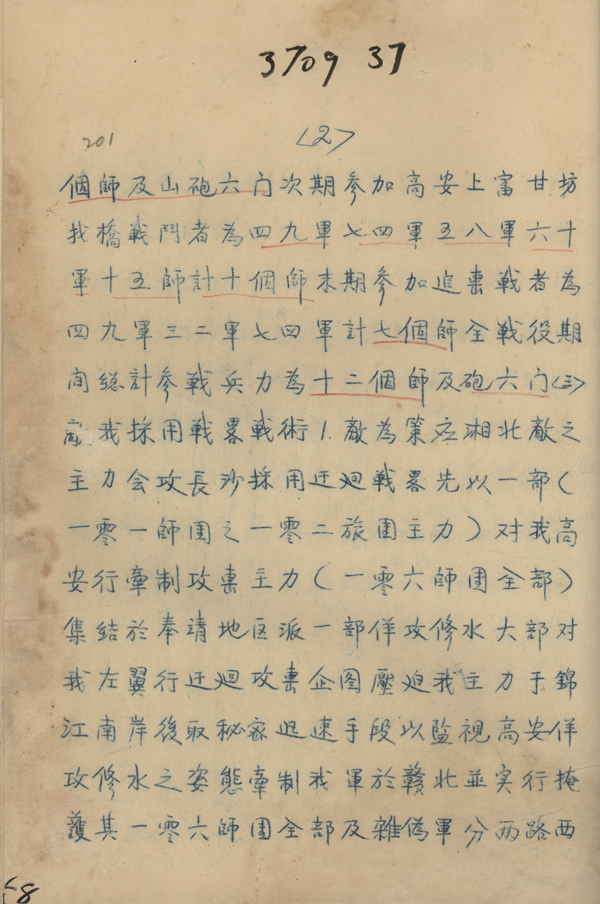 3709 37
201
<2>
個師及山砲六门次期参加高安上富甘坊
找橋戰鬥者為四九軍七四軍五八軍六十
軍十五師計十個師末期参加追击戰者為
四九軍三二軍七四軍計七個師全戰役期
间総計参戰兵力為十二個師及砲六门<三>
敵我採用戰畧戰術1.敵為策应湘北敵之
主力会攻長沙採用迂廻戰畧先以一部(
一零一師團之一零二旅團主力)对我高
安行牽制攻击主力(一零六師團全部)
集結於奉靖地区派一部佯攻修水大部对
我左翼行迂廻攻击企图壓迫我主力于錦
江南岸後取秘密迅速手段以監視高安佯
攻修水之姿態牽制我軍於贛北並实行掩
護其一零六師團全部及雜偽軍分两路西
58